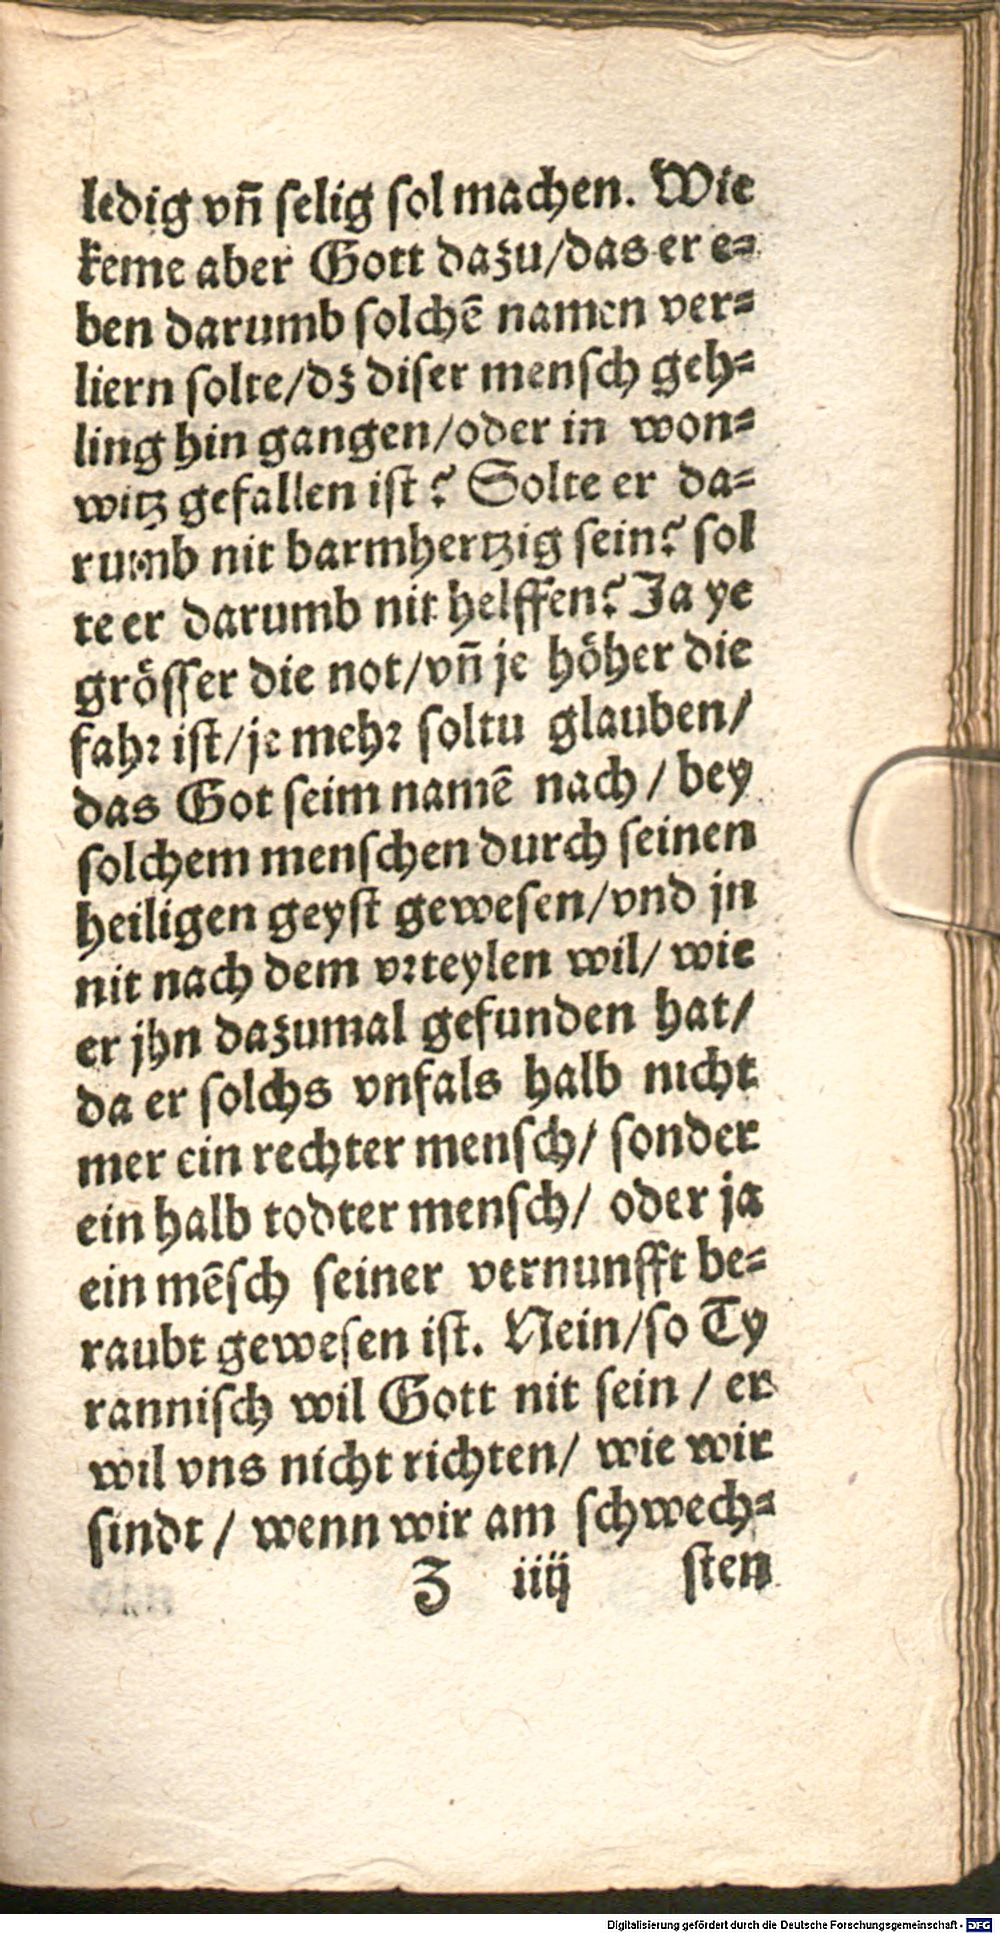 ledig vñ ſelig ſol machen. Wie
keme aber Gott dazu/das er e⸗
ben darumb ſolchē namen ver⸗
liern ſolte/dz diſer menſch geh⸗
ling hin gangen/oder in won⸗
witz gefallen iſt? Solte er da⸗
rumb nit barmhertzig ſein? ſol
te er darumb nit helffen? Ja ye
gröſſer die not/vñ je höher die
fahr iſt/je mehr ſoltu glauben/
das Got ſeim namē nach / bey
ſolchem menſchen durch ſeinen
heiligen geyſt geweſen/vnd jn
nit nach dem vrteylen wil/ wie
er jhn dazumal gefunden hat/
da er ſolchs vnfals halb nicht
mer ein rechter menſch/ ſonder
ein halb todter menſch/ oder ja
ein mēſch ſeiner vernunfft be⸗
raubt geweſen iſt. Nein/ſo Ty
ranniſch wil Gott nit ſein / er
wil vns nicht richten/ wie wir
ſindt / wenn wir am ſchwech⸗
Z iiij ſten
Digitalisierung gefördert durch die Deutsche Forschungsgemeinschaft - DFG